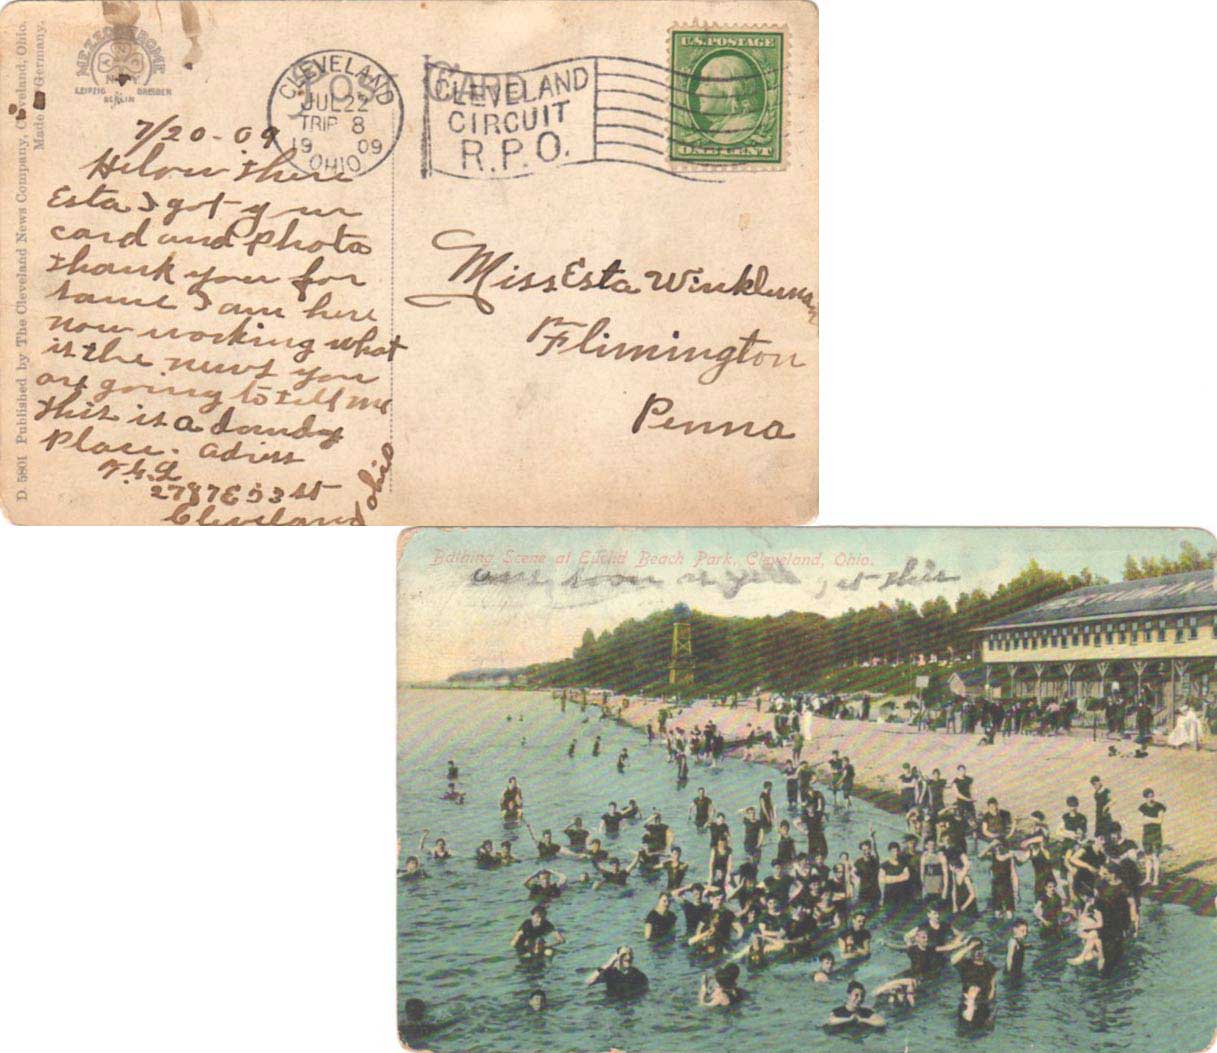 D 5801 Published by The Cleveland News Company, Cleveland, Ohio.
Made in Germany.
MEZZOCHROME
LEIPZIG DRESDEN
BERLIN
POST CARD
CLEVELAND
JUL 22
TRIP 8
19 09
OHIO
CLEVELAND
CIRCUIT
R.P.O.
U.S. POSTAGE
ONE CENT
7/20-09
Helow there
Esta I got your
card and photo
thank you for
same I am here
now working what
is the news you
are going to tell me
this is a dandy
place. adress
2787 E 53 st
Cleveland
Ohio
Miss Esta
Flimington
Penna
Bathing Scene at Euclid Beach Park, Cleveland, Ohio.
soon at this